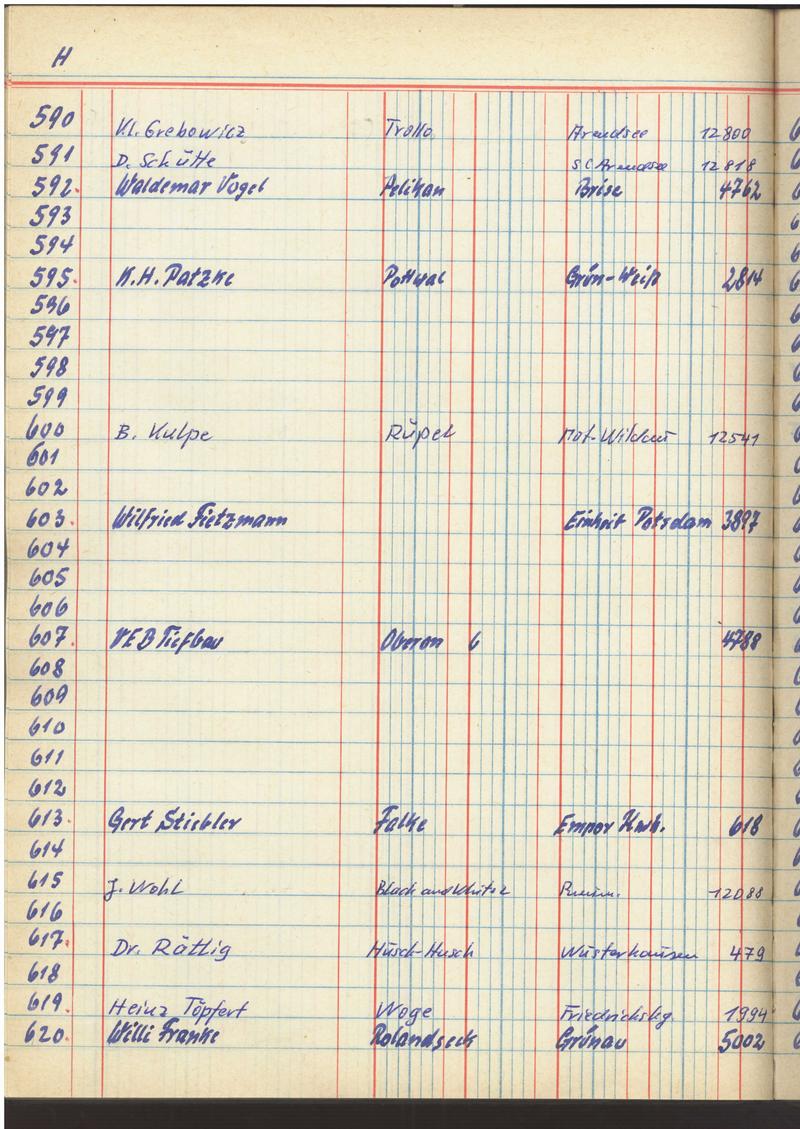 H
590 Kl. Grebowicz Trollo Arendsee 12800
591 D. Schütte SC Arendsee 12818
592. Waldemar Vogel Pelikan Brise 4762
593
594
595. K.H. Patzke Pottwal Grün-Weiß 2814
596
597
598
599
600 B. Kulpe Rüpel Mot-Wildau 12541
601
602
603. Wilfried Fietzmann Einheit Potsdam 3897
604
605
606
607. VEB Tiefbau Oberon 6 4788
608
609
610
611
612
613. Gert Stiebler Falke Empor Kwh. 618
614
615 J. Wohl Black and White 12088
616
617. Dr. Rätlig Husch-Husch Wusterhausen 479
618
619. Heinz Töpfert Woge Friedrichshg. 1994
620. Willi Franke Rolandseck Grünau 5002